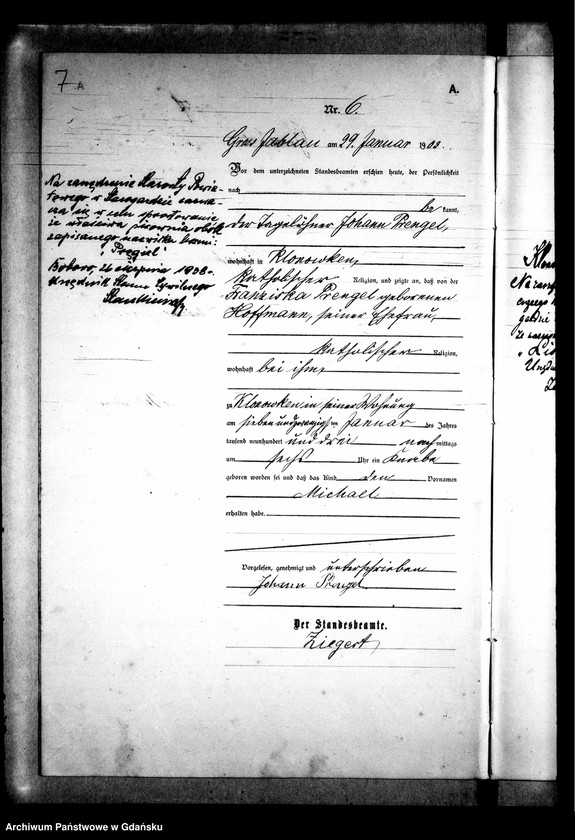 7 A
A.
Nr. 6.
Gross Jablau am 29. Januar 1903
Vor dem unterzeichneten Standesbeamten erschien heute, der Persönlichkeit
nach
be kannt,
der Tagelöhner Johann Prengel,
wohnhaft in Klonowken,
katholischer Religion, und zeigte an, daß von der
Franziska Prengel geborenen
Hoffmann, seiner Ehefrau,
katholischer Religion,
wohnhaft bei ihm,
zu Klonowken in seiner Wohnung
am sieben und zwanzigsten Januar des Jahres
tausend neunhundert und drei nach mittags
um sechs Uhr ein Knabe
geboren worden sei und daß das Kind den Vornamen
Michael
erhalten habe.
Vorgelesen, genehmigt und unterschrieben
Johann Prengel
Der Standesbeamte.
Ziegert
Na zarządzenie Starosty Powia-
towego w Starogardzie zazna-
cza się w celu sprostowania
że właściwa pisownia obok
zapisanego nazwiska brzmi:
"Pręgiel"
Bobowo, 26 sierpnia 1938.
Urzędnik Stanu Cywilnego
Archiwum Państwowe w Gdańsku